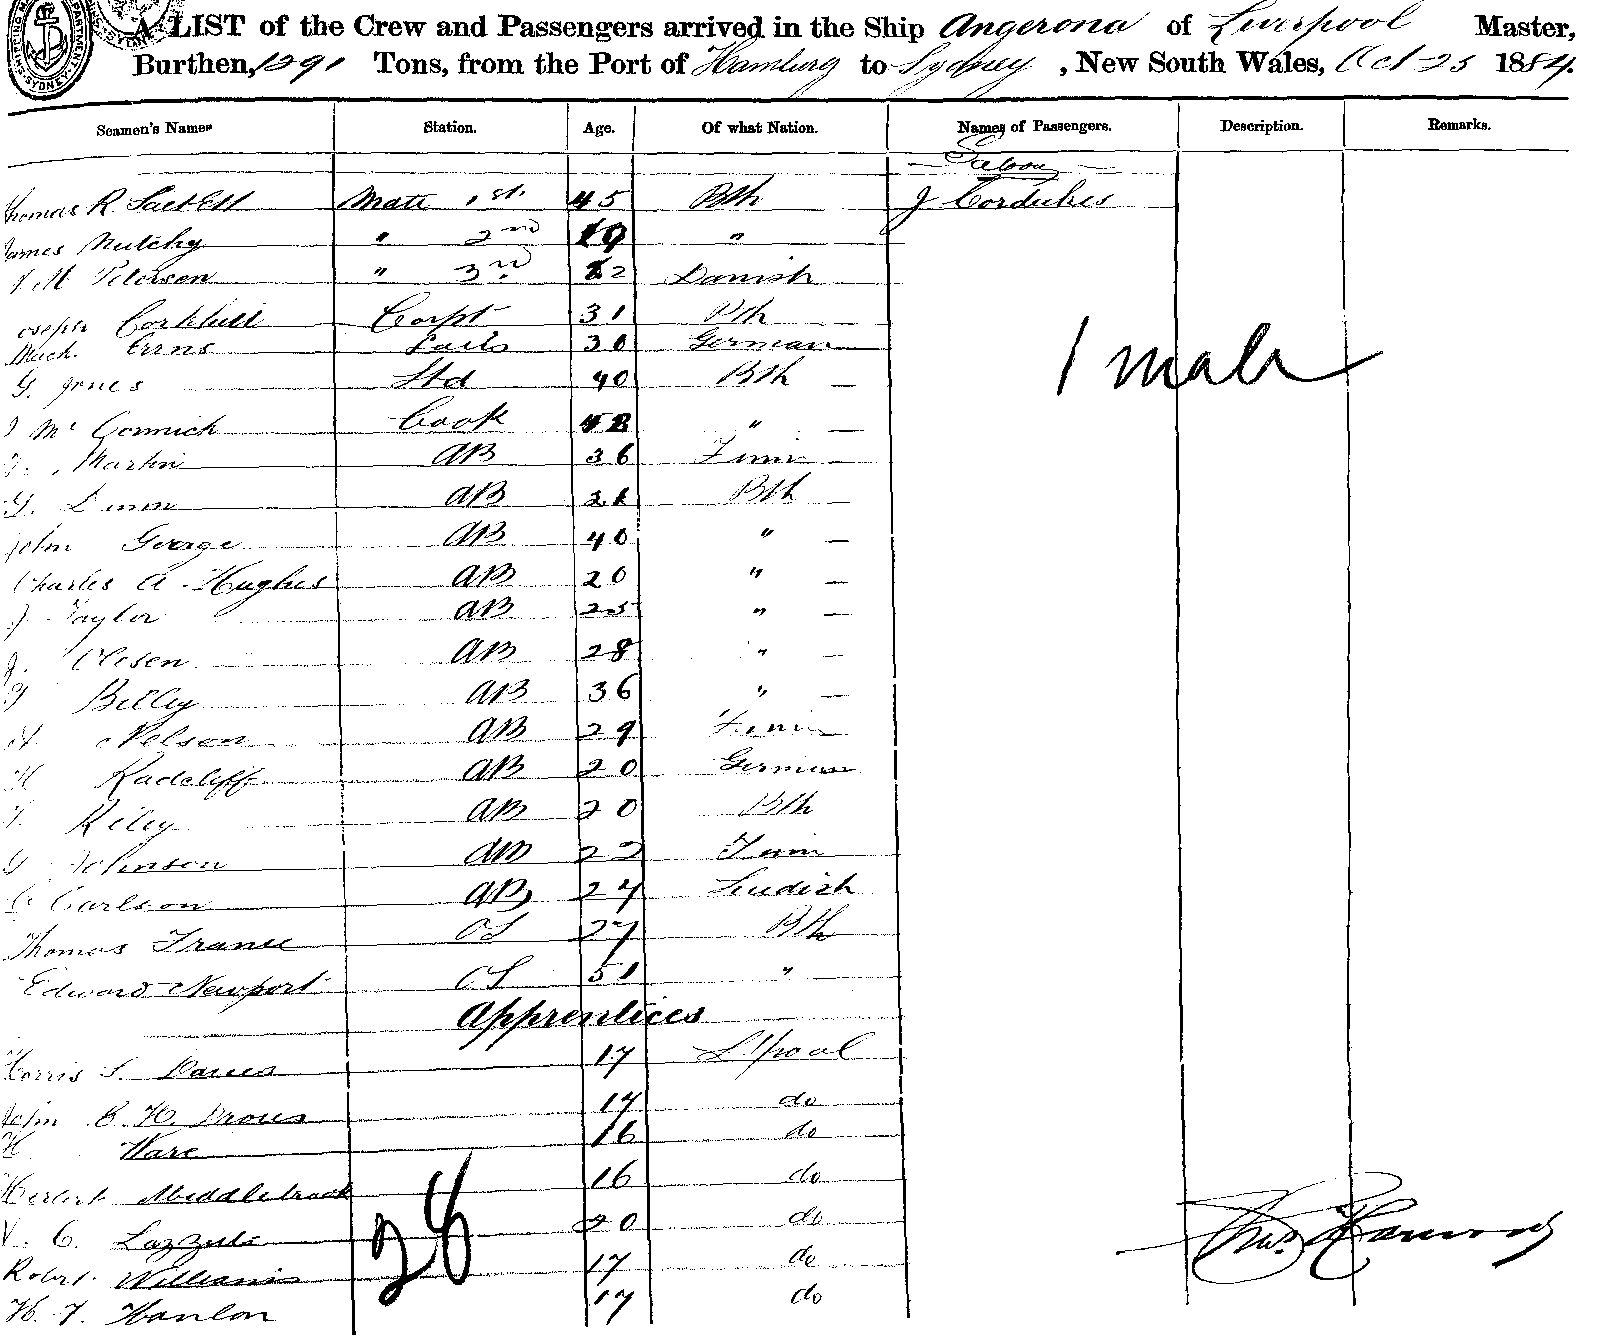 A LIST of the Crew and Passengers arrived in the Ship Angerona of Liverpool Master,
Burthen, 1291 Tons, from the Port of Hamburg to Sydney, New South Wales, Oct 25 1884.
Seamen's Names Station. Age. Of what Nation. Names of Passengers. Description. Remarks.
Saloon
Thomas R. Mate 1st. 45 Bth J Cordukes
James " 2nd 19 "
M Peterson " 3rd. 22 Danish
Joseph Corkhill Carpt 31 Bth
Mich. Errns Sails 30 German
1 male
G. Jones Std 40 Bth —
J Mc Cormich Cook " —
Martin AB 36 Finn —
G. AB Bth —
John George AB 40 " —
Charles A Hughes AB 20 " —
J Taylor AB 25 " —
J. Olesen AB 28 " —
Billey AB 36 " —
Nelson AB 29 Finn
H Radcliff AB 20 German
T. Riley AB 20 Bth
G Johnson AB 22 Finn
C Carlson AB 24 Sudish
Thomas France OS 27 Bth
Edward Newport OS 51 "
Apprentices
Morris S. Davies 17 L'pool
John C. H. 17 do
H Ware 16 do
Herbert Middlebrook 16 do
V. C. 20 do
28
Robert Williams 17 do
H. T. Hanlon 17 do